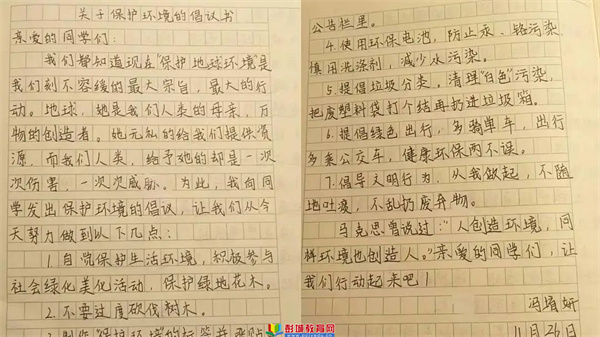 关于保护环境的倡议书
亲爱的同学们：
我们都知道现在"保护地球环境"是
我们刻不容缓的最大宗旨，最大的行
动。地球，她是我们人类的母亲，万
物的创造者。她无私的给我们提供资
源，而我们人类，给予她的却是一次
次伤害，一次次威胁。为此，我向同
学发出保护环境的倡议，让我们从今
天努力做到以下几点：
1.自觉保护生活环境，积极参与
社会绿化美化活动，保护绿地花木。
2.不要过度砍伐树木。
公告栏里。
4.使用环保电池，防止汞、铬污染
慎用洗涤剂，减少水污染。
5.提倡垃圾分类。清理"白色"污染，
把废塑料袋打个结再扔进垃圾箱。
6.提倡绿色出行，多骑单车，出行
多乘公交车，健康环保两不误。
7.倡导文明行为，从我做起，不随
地吐痰，不乱扔废弃物。
马克思曾说过："人创造环境，同
样环境也创造人。"亲爱的同学们，让
我们行动起来吧！
冯 妍
11月26日
彭城教育网